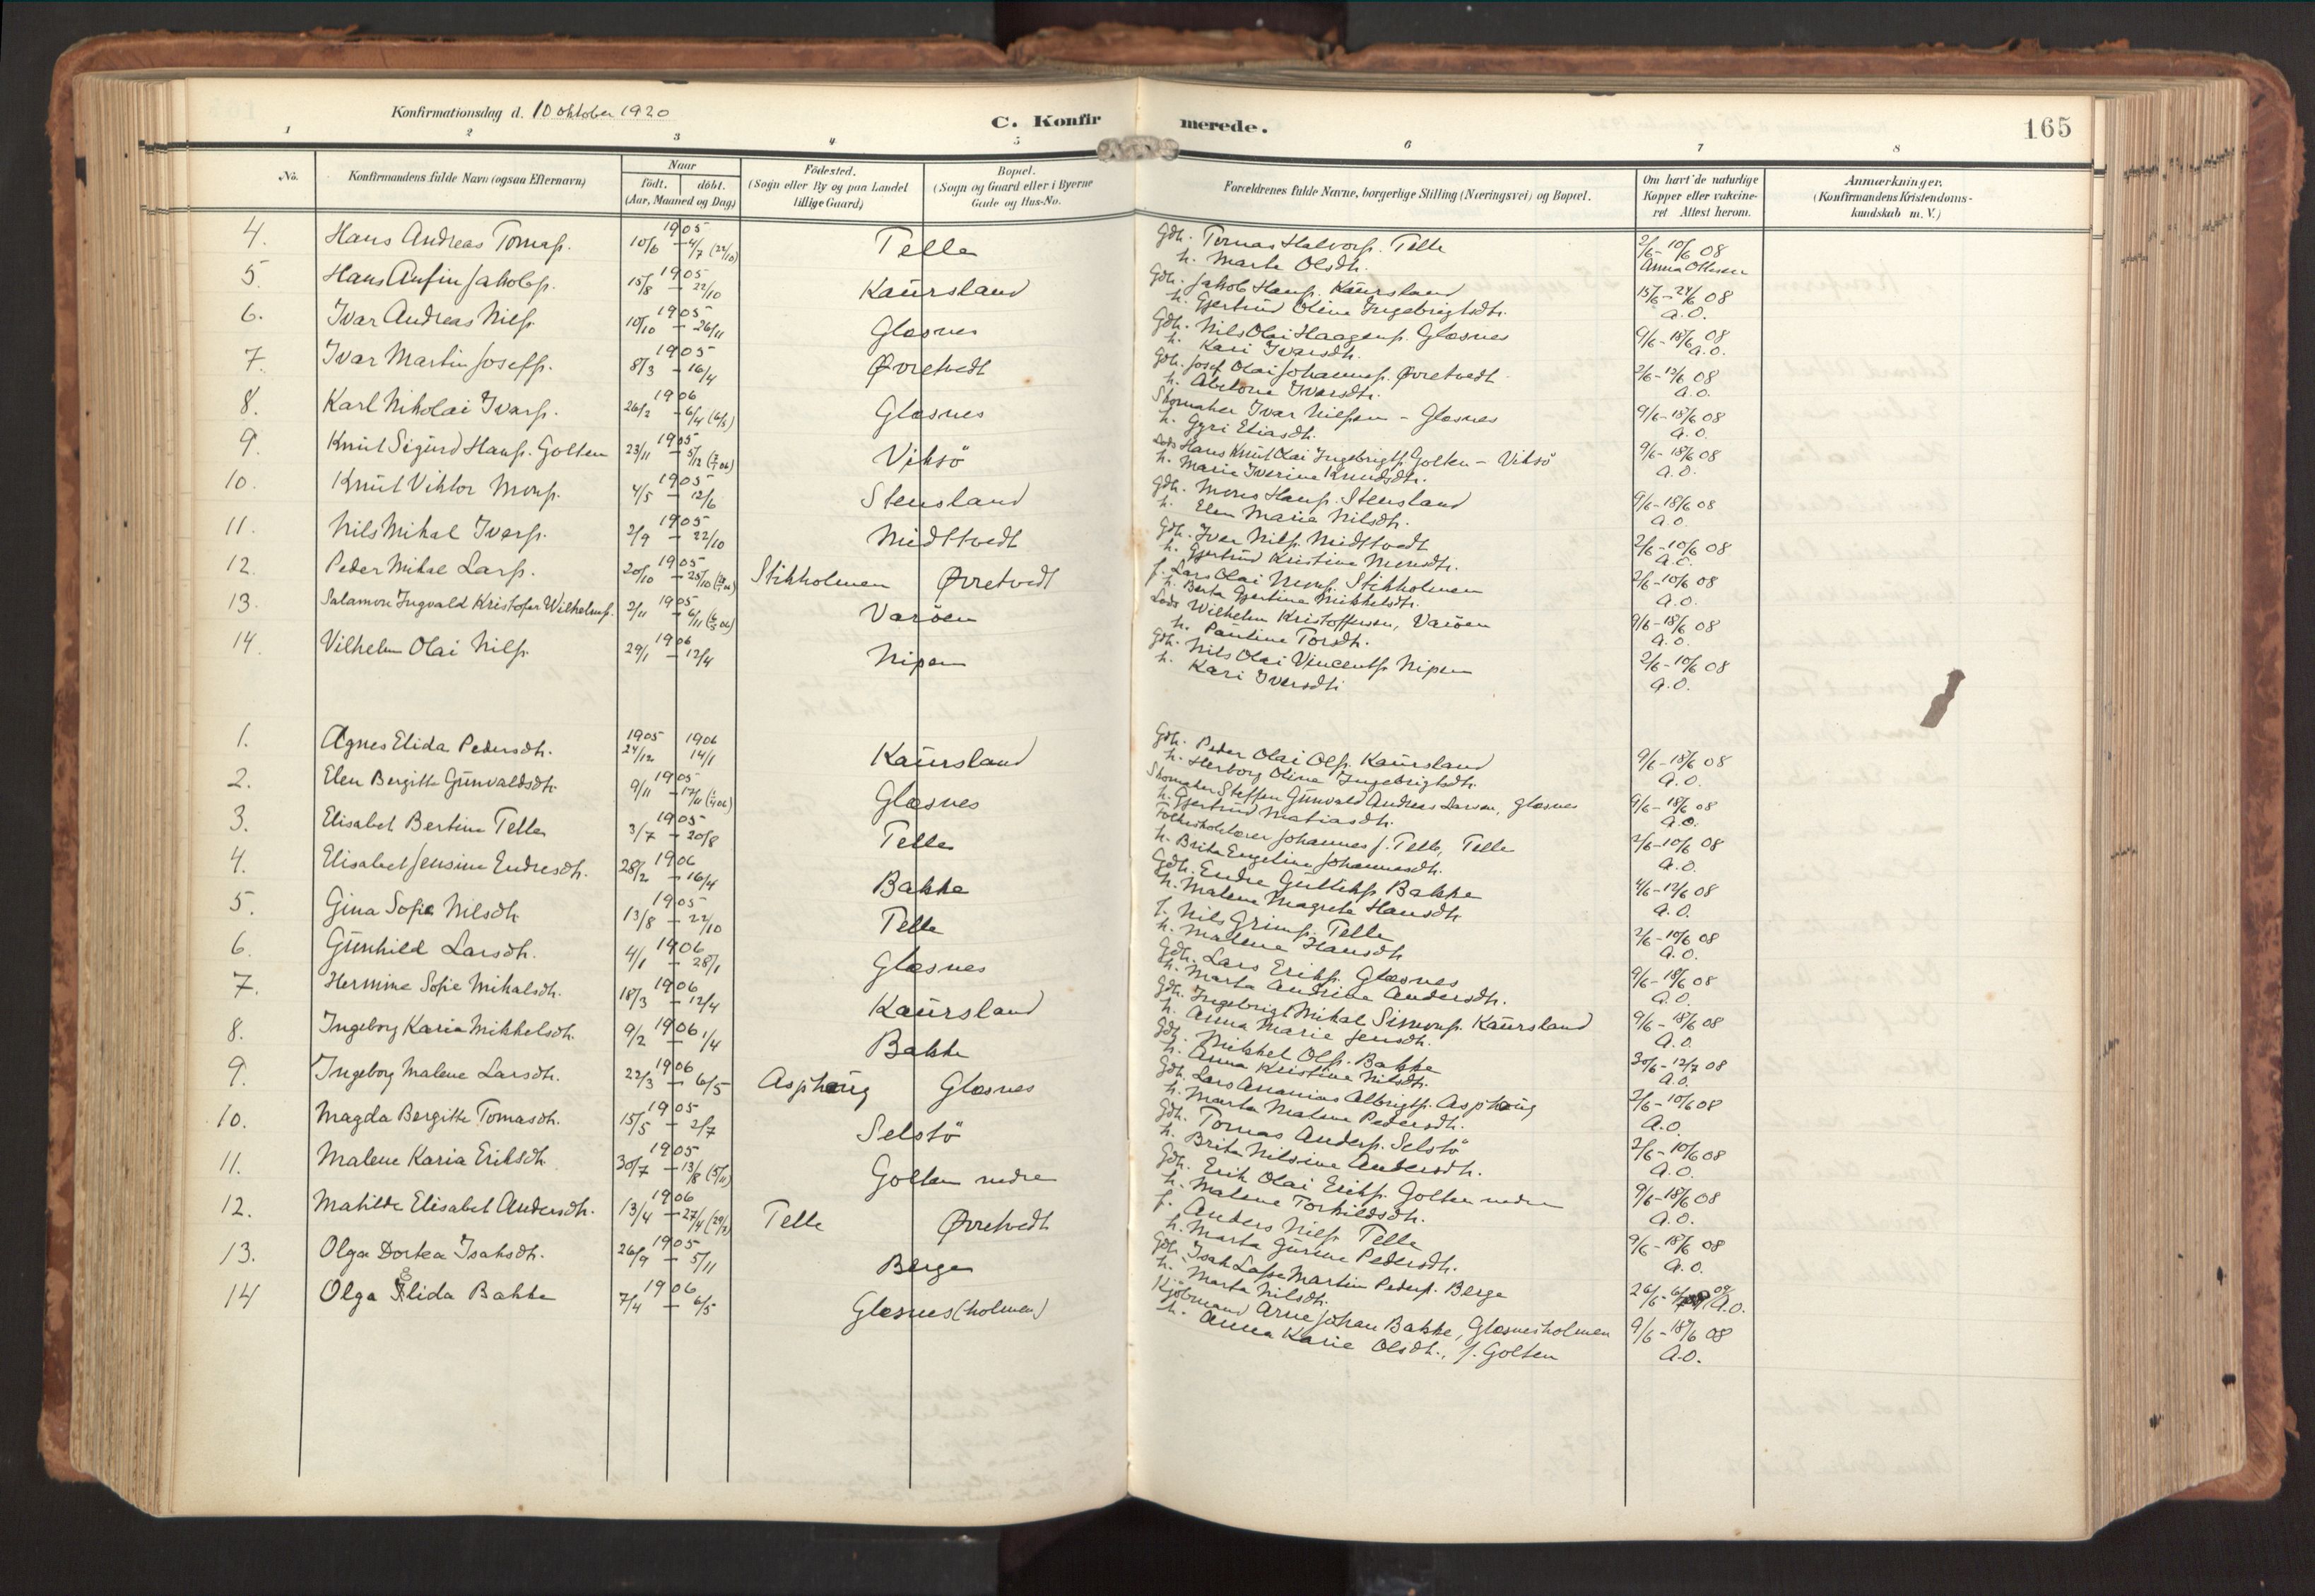 Konfirmationsdag d. 10 oktober 1920
C. Konfirmerede.
165
1 2 3 4 5 6 7 8
No. Konfirmandens fulde Navn (ogsaa Efternavn) Naar født. døbt. (Aar, Maaned og Dag) Födested. (Sogn eller By og paa Landet tillige Gaard) Bopæl. (Sogn og Gaard eller i Byerne Gade og Hus-No. Forældrenes fulde Navne, borgerlige Stilling (Næringsvei) og Bopæl. Om havt de naturlige Kopper eller vakcineret Attest herom. Anmærkninger. (Konfirmandens Kristendomskundskab m. V.)
4. Hans Andreas Tomass. 1905 10/6 – 4/7 (22/10) Telle Gdr. Tomas Halvors. Telle 2/6 – 10/6 08
h. Marta Olsdtr. Anna Ottesen
5. Hans Anfin Jakobs. 1905 15/8 – 22/10 Kaursland Gdr. Jakob Hans. Kaursland 15/6 – 24/6 08
h. Gjertrud Oline Ingebrigtsdtr. A.O.
6. Ivar Andreas Nils. 1905 10/10 – 26/11 Glæsnes Gdr. Nils Olai Haagens. Glæsnes 9/6 – 18/6 08
h. Kari Ivarsdtr. A.O.
7. Ivar Martin Josefs. 1905 8/3 – 16/4 Øvretvedt Gdr. Josef Olai Johanness. Øvretvedt 2/6 – 12/6 08
h. Abelone Ivarsdtr. A.O.
8. Karl Nikolai Ivars. 1906 26/2 – 6/4 (6/5) Glæsnes Skomaker Ivar Nilssen – Glæsnes 9/6 – 18/6 08
h. Gyri Eliasdtr. A.O.
9. Knut Sigurd Hans. Golten 1905 23/11 – 5/12 Viksö Lods Hans Knut Olai Ingebrigts. Golten – Viksö 9/6 – 18/6 08
h. Marie Iverine Knudsdtr. A.O.
10. Knut Viktor Mons. 1905 4/5 – 12/6 Stensland Gdr. Mons Hans. Stensland 9/6 – 18/6 08
h. Elen Marie Nilsdtr. A.O.
11. Nils Mikal Ivers. 1905 2/9 – 22/10 Midttvedt Gdr. Iver Nils. Midttvedt 2/6 – 10/6 08
h. Gjertrud Kristine Monsdtr. A.O.
12. Peder Mikal Lars. 1905 20/10 – 25/10 Stikholmen Øvretvedt f. Lars Olai Mons. Stikholmen 2/6 – 10/6 08
h. Berta Gjertine Mikkelsdtr. A.O.
13. Salamon Ingvald Kristofer Wilhelms. 1905 2/11 – 6/11 Varöen Lods Wilhelm Kristoffersen, Varöen 9/6 – 18/6 08
h. Pauline Torsdtr. A.O.
14. Vilhelm Olai Nils. 1906 29/1 – 12/4 Nipen Gdr. Nils Olai Vincents. Nipen 2/6 – 10/6 08
h. Kari Iversdtr. A.O.
1. Agnes Elida Pedersdtr. 1905 24/12 1906 14/1 Kaursland Gdr. Peder Olai Ols. Kaursland 9/6 – 18/6 08
h. Herborg Oline Ingebrigtsdtr. A.O.
2. Elen Bergitte Gunvaldsdtr. 1905 9/11 – 17/11 Glæsnes Skomaker Steffen Gunvald Andreas Larsen, Glæsnes 9/6 – 18/6 08
h. Gjertrud Matiasdtr. A.O.
3. Elisabet Bertine Telle 1905 3/7 – 20/8 Telle Folkeskolelærer Johannes J. Telle, Telle 2/6 – 10/6 08
h. Brita Engeline Johannesdtr. A.O.
4. Elisabet Jensine Endresdtr. 1906 28/2 – 16/4 Bakke Gdr. Endre Gulliks. Bakke 4/6 – 12/6 08
h. Malene Magreta Hansdtr. A.O.
5. Gina Sofie Nilsdtr. 1905 13/8 – 22/10 Telle f. Nils Grims. Telle 2/6 – 10/6 08
h. Malene Hansdtr A.O.
6. Gunhild Larsdtr. 1906 4/1 – 28/1 Glæsnes Gdr. Lars Eriks. Glæsnes 9/6 – 18/6 08
h. Marta Andrine Andersdtr. A.O.
7. Hermine Sofie Mikalsdtr. 1906 18/3 – 12/4 Kaursland Gdr. Ingebrigt Mikal Simons. Kaursland 9/6 – 18/6 08
h. Anna Marie Jensdtr. A.O.
8. Ingeborg Karia Mikkelsdtr. 9/2 1906 – 1/4 Bakke Gdr. Mikkel Ols. Bakke 30/6 – 12/7 08
h. Anna Kristine Nilsdtr. A.O.
9. Ingeborg Malene Larsdtr. 1906 22/3 – 6/5 Asphaug Glæsnes Gdr. Lars Ananias Albrigts. Asphaug 2/6 – 10/6 08
h. Marta Malene Pedersdtr. A.O.
10. Magda Bergitte Tomasdtr. 1905 15/5 – 2/7 Selstö Gdr. Tomas Anders. Selstö 2/6 – 10/6 08
h. Brita Nilsine Andersdtr. A.O.
11. Malene Karia Eriksdtr. 1905 30/7 – 13/8 (5/11) Golten nedre Gdr. Erik Olai Eriks. Golten nedre 9/6 – 18/6 08
h. Malene Torkildsdtr. A.O.
12. Matilde Elisabet Andersdtr. 1906 13/4 – 27/4 Telle Øvretvedt f. Anders Nils. Telle 9/6 – 18/6 08
h. Marta Gurine Pedersdtr. A.O.
13. Olga Dortea Isaksdtr. 1905 26/9 – 5/11 Berge Gdr. Isak Lasse Martin Peders. Berge 26/6 – 09 A.O.
h. Marta Nilsdtr.
14 Olga Elida Bakke 1906 7/4 – 6/5 Glæsnes (holmen) Kjöbmand Arne Johan Bakke, Glæsnesholmen 9/6 – 18/6 08
h. Anna Karie Olsdtr., f. Golten A.O.